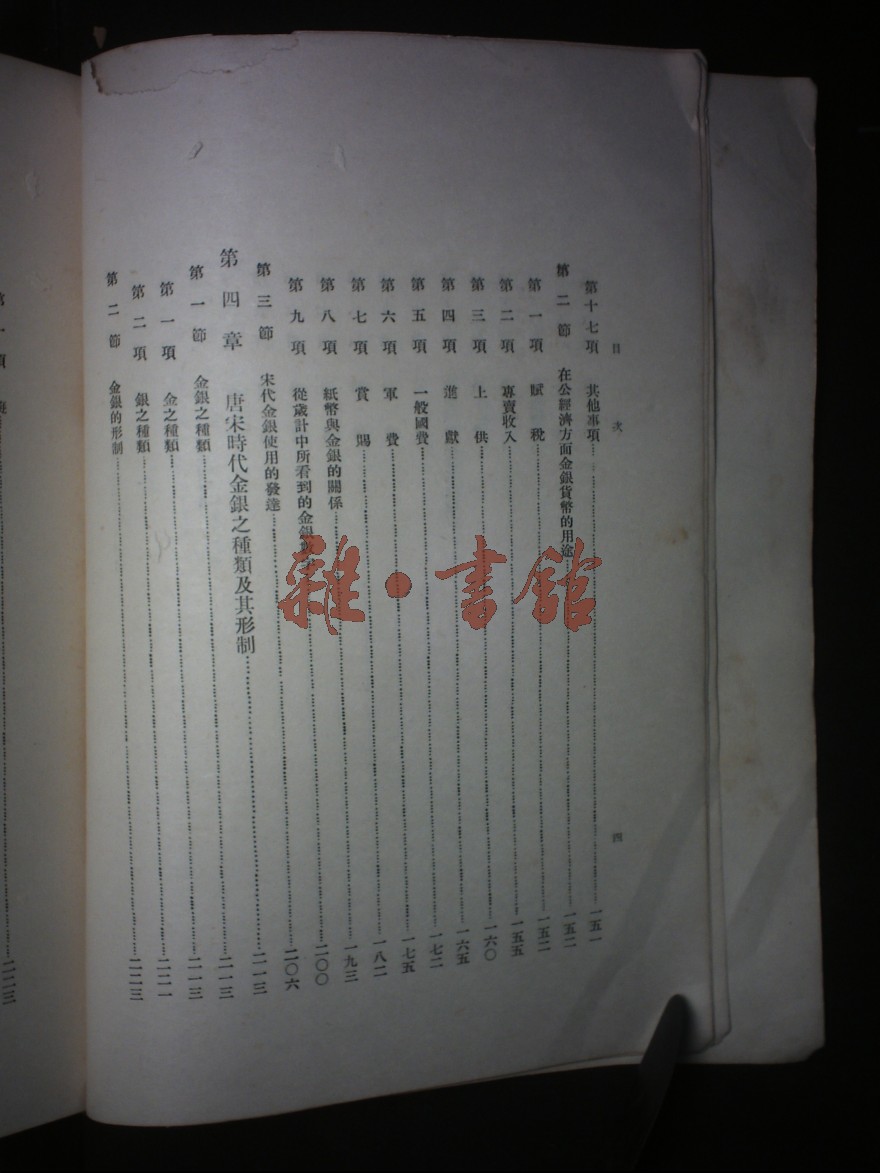 目次 四
第十七項 其他事項 一五一
第二節 在公經濟方面金銀貨幣的用途 一五二
第一項 賦稅 一五二
第二項 專賣收入 一五五
第三項 上供 一六〇
第四項 進獻 一六五
第五項 一般國費 一七二
第六項 軍費 一七五
第七項 賞賜 一八二
第八項 紙幣與金銀的關係 一九三
第九項 從歲計中所看到的金銀 二〇〇
第三節 宋代金銀使用的發達 二〇六
第四章 唐宋時代金銀之種類及其形制 二一三
第一節 金銀之種類 二一三
第一項 金之種類 二一三
第二項 銀之種類 二二一
第二節 金銀的形制 二二三
第一項 二二三
雜·書館